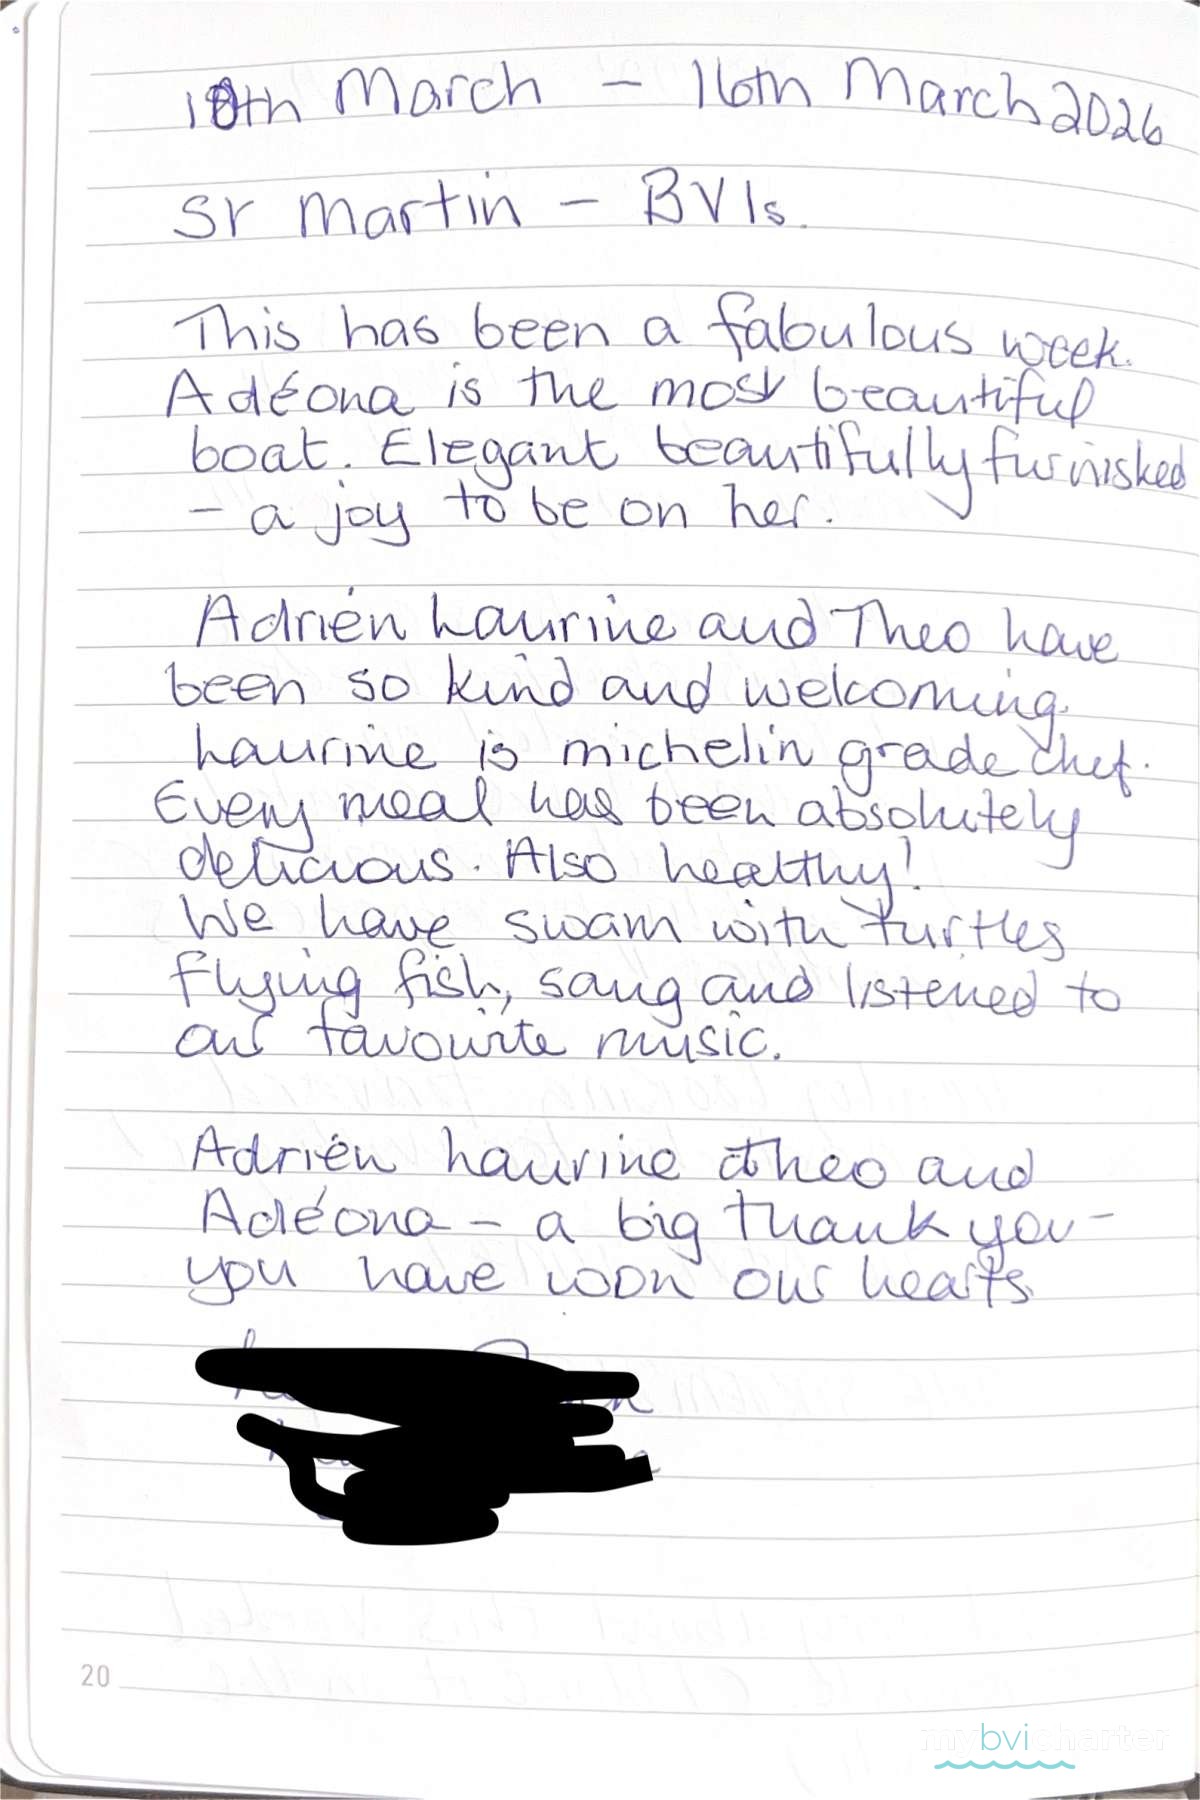 10th March - 16th March 2026
St Martin - BVIs.
This has been a fabulous week.
Adéona is the most beautiful
boat. Elegant beautifully furnished
- a joy to be on her.
Adrién Laurine and Theo have
been so kind and welcoming.
Laurine is michelin grade chef.
Every meal has been absolutely
delicious. Also healthy!
We have swam with turtles
flying fish, sang and listened to
our favourite music.
Adrién Laurine Theo and
Adéona - a big thank you -
you have won our hearts
20
mybvicharter